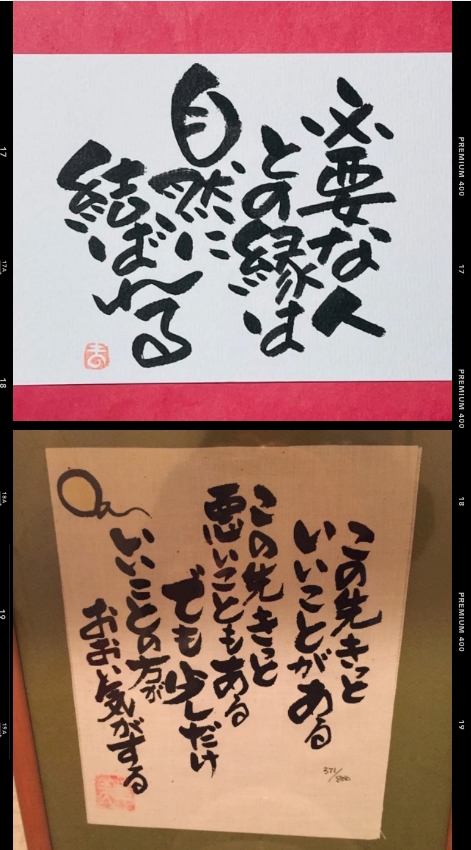 必要な人
との縁は
自然に
結ばれる
この先きっと
いいことがある
この先きっと
悪いこともある
でも少しだけ
いいことの方が
おおい気がする
371/800
PREMIUM 400
17
PREMIUM 400
18
PREMIUM 400
19
17
17A
18
18A
19
19A